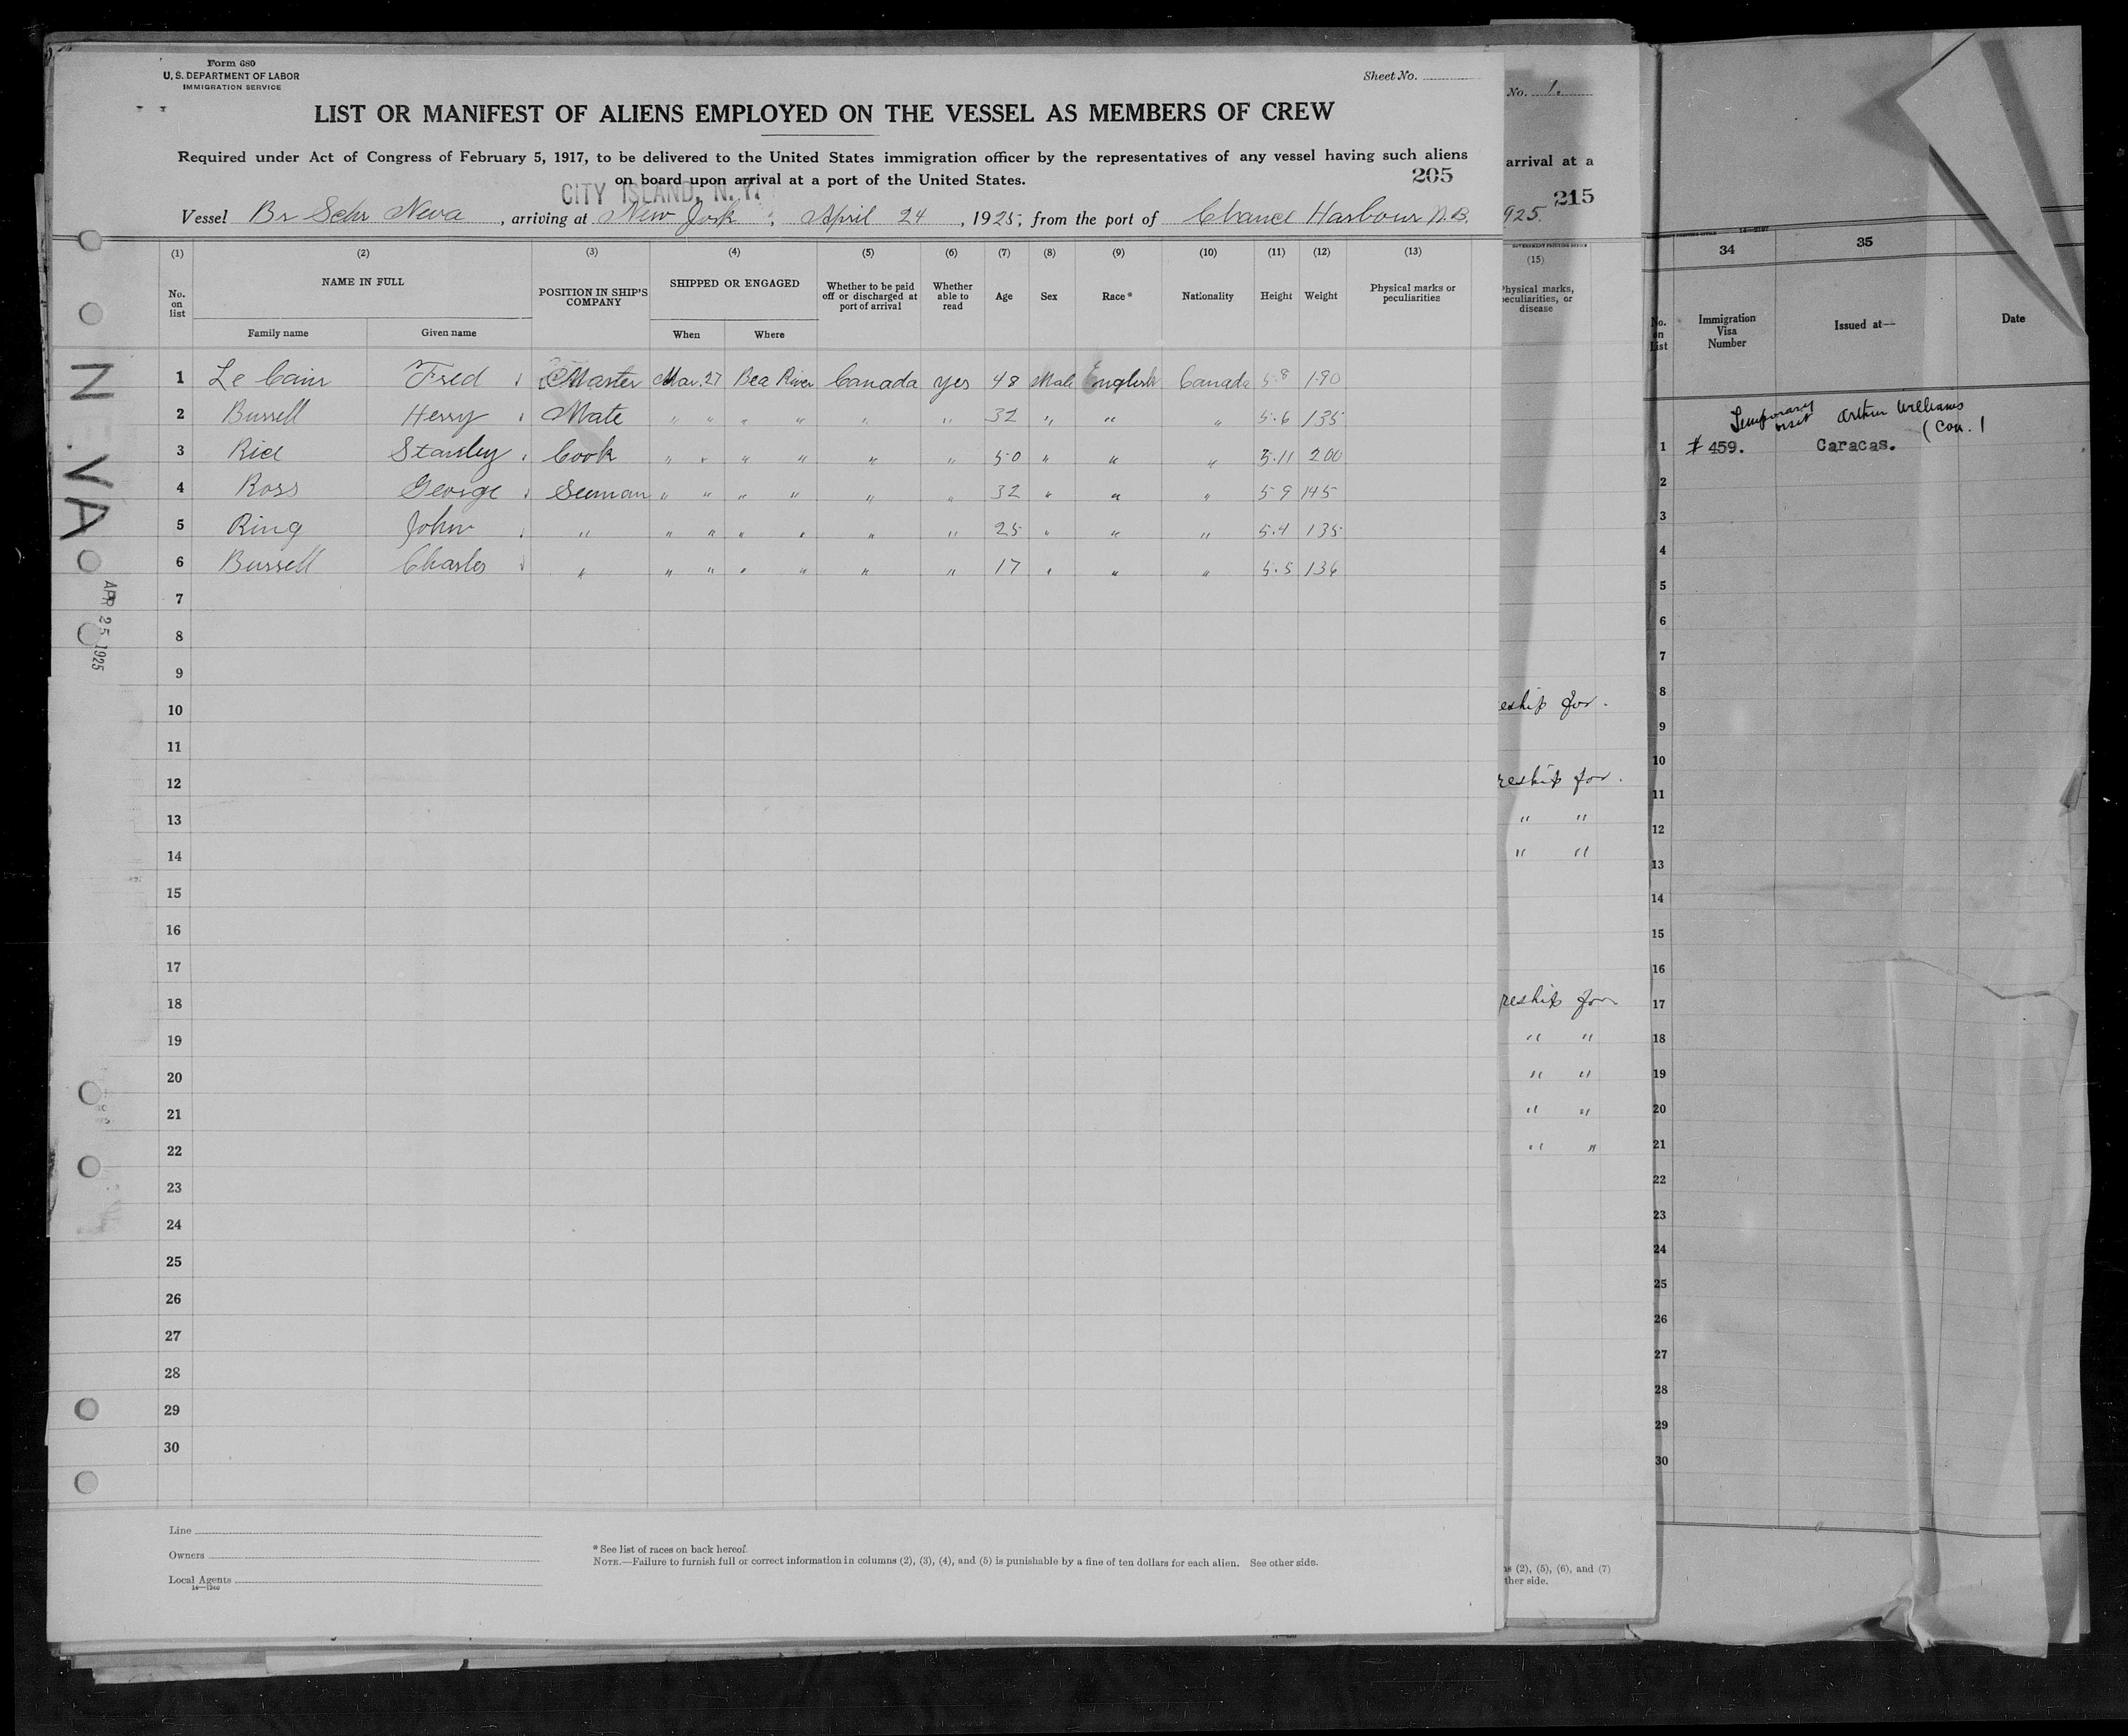 Form 680
U. S. DEPARTMENT OF LABOR
IMMIGRATION SERVICE
Sheet No.
LIST OR MANIFEST OF ALIENS EMPLOYED ON THE VESSEL AS MEMBERS OF CREW
Required under Act of Congress of February 5, 1917, to be delivered to the United States immigration officer by the representatives of any vessel having such aliens
on board upon arrival at a port of the United States.
205
CITY ISLAND, N. Y.
Vessel Br Schr Neva, arriving at New York, April 24, 1925, from the port of Chance Harbour N.B.
(1) (2) (3) (4) (5) (6) (7) (8) (9) (10) (11) (12) (13)
No. on list NAME IN FULL POSITION IN SHIP'S COMPANY SHIPPED OR ENGAGED Whether to be paid off or discharged at port of arrival Whether able to read Age Sex Race* Nationality Height Weight Physical marks or peculiarities
Family name Given name When Where
1 Le Cain Fred Master Mar. 27 Bea River Canada yes 48 Male English Canada 5.8 190
2 Bussell Henry Mate " " " " " " 32 " " " 5.6 135
3 Stanley Cook " " " " " " 50 " " " 5.11 200
4 Ross George Seaman " " " " " " 32 " " " 5 9 145
5 Ring John " " " " " " " 25 " " " 5.4 135
6 Bussell Charles " " " " " " " 17 " " " 5.5 136
7
8
9
10
11
12
13
14
15
16
17
18
19
20
21
22
23
24
25
26
27
28
29
30
Line
Owners
Local Agents
* See list of races on back hereof.
NOTE.—Failure to furnish full or correct information in columns (2), (3), (4), and (5) is punishable by a fine of ten dollars for each alien. See other side.
APR 25 1925
No. 1.
arrival at a
215
925.
(15)
Physical marks, peculiarities, or disease
eship for.
reship for.
" "
" "
reship for
" "
" "
" "
" "
ns (2), (5), (6), and (7)
ther side.
34 35
No. on List Immigration Visa Number Issued at— Date
Temporary visit Arthur Williams (Con.)
1 # 459. Caracas.
2
3
4
5
6
7
8
9
10
11
12
13
14
15
16
17
18
19
20
21
22
23
24
25
26
27
28
29
30